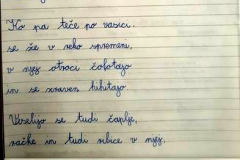 Ko pa teče po vasici
se že v reko spremeni,
v njej otroci čofotajo
in se zraven hihitajo.
Veselijo se tudi čaplje,
račke in tudi ribice v njej.